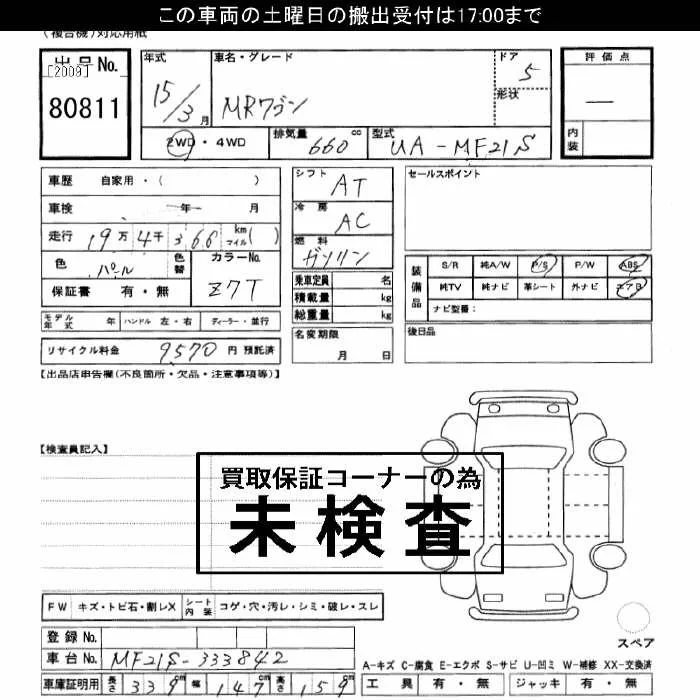 この車両の土曜日の搬出受付は17:00まで
(複合機)対応用紙
出品No.
[2009]
80811
年式
15/3月
車名・グレード
MRワゴン
ドア
5
形状
評価点
—
内装
2WD・4WD
排気量 660 cc
型式 UA-MF21S
車歴 自家用・( )
車検 年 月
走行 19万4千366 km マイル( )
色 パール
色替
カラーNo. Z7T
保証書 有・無
モデル年式 年 ハンドル 左・右 ディーラー・並行
リサイクル料金 9570 円 預託済
シフト
AT
冷房
AC
燃料
ガソリン
乗車定員 名
積載量 kg
総重量 kg
名変期限
月 日
セールスポイント
装備品
S/R 純A/W P/S P/W ABS
純TV 純ナビ 革シート 外ナビ エアB
ナビ型番:
後日品
【出品店申告欄(不良箇所・欠品・注意事項等)】
【検査員記入】
買取保証コーナーの為
未検査
FW キズ・トビ石・割レX シート内装 コゲ・穴・汚レ・シミ・破レ・スレ
スペア
登録No.
車台No. MF21S-333842
車庫証明用 長さ 339cm 幅 147cm 高さ 159cm
A-キズ C-腐食 E-エクボ S-サビ U-凹ミ W-補修 XX-交換済
工具 有・無 ジャッキ 有・無